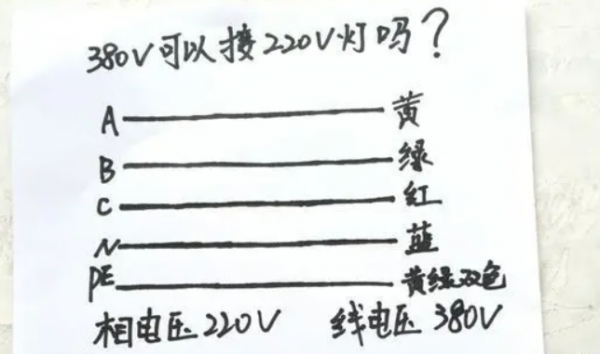 380V可以接220V灯吗？
A 黄
B 绿
C 红
N 蓝
PE 黄绿双色
相电压220V 线电压380V